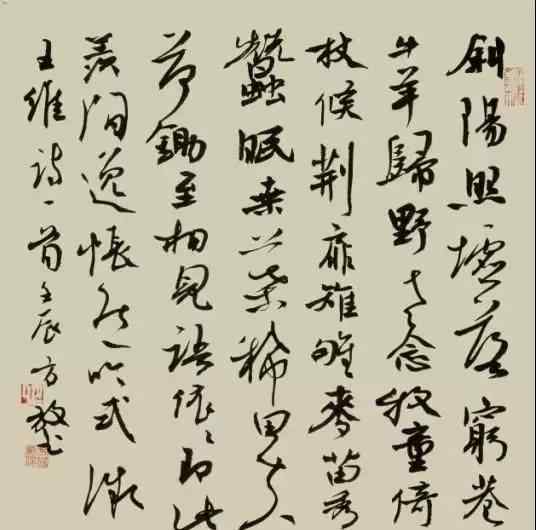 斜陽照墟落窮巷
牛羊歸野老念牧童倚
杖候荊扉雉雊麥苗秀
蠶眠桒葉稀田夫
荷鋤至相見語依々即此
羨閒逸悵然吟式微
王維詩一首壬辰方